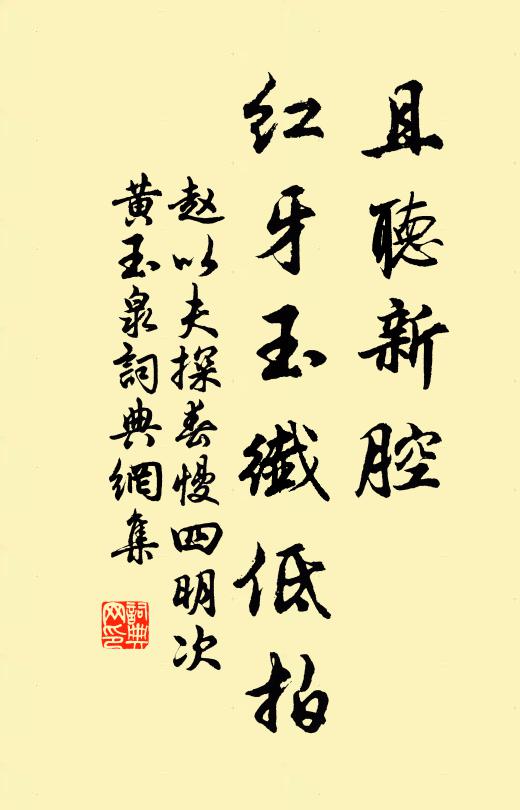 且聽新腔
紅牙玉纖低拍
赵以夫探春慢四明次
黃玉泉詞典網集
詞典
网印